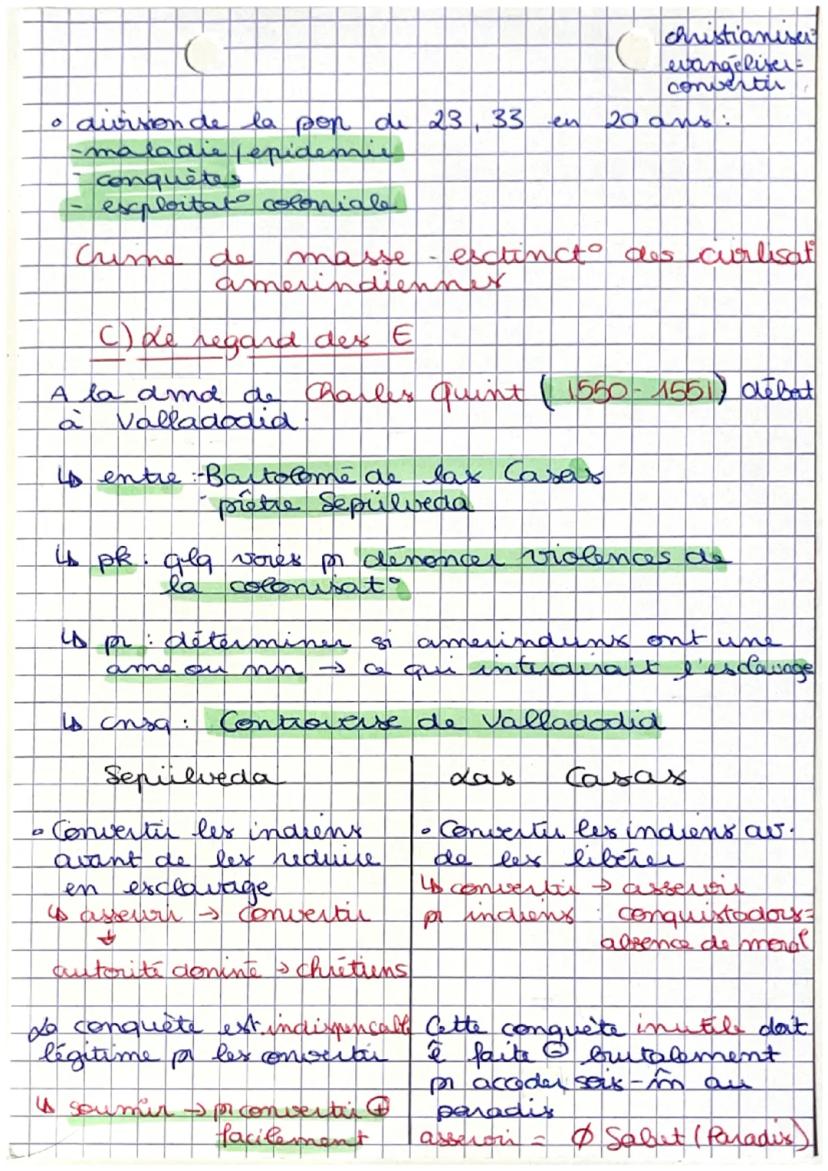 christianiser
evangéliser =
convertir
° division de la pop de 23,33 en 20 ans :
- maladie / epidemie
- conquètes
- esploitat° coloniale
Crime de masse - esctinct° des civilisat°
amerindiennes
C) Le regard des E
A la dmd de Charles Quint (1550 - 1551) débat
à Valladodid.
↳ entre : - Bartolomé de las Casas
- prêtre Sepülveda
↳ pk : qlq voies pr dénoncer violences de
la colonisat°
↳ pr : déterminer si amerindiens ont une
âme ou nn → ce qui interdirait l'esclavage
↳ cnsq : Controverse de Valladodid
Sepülveda
° Convertir les indiens
avant de les reduire
en esclavage
↳ asservir → convertir
↓
autorité donine → chrétiens
La conquète est indispensable
légitime pr les convertir
↳ soumir → pr convertir ⊕
facilement
Las Casas
° Convertir les indiens av.
de les libérer
↳ convertir → asservir
pr indiens : conquistadors =
absence de moral
Cette conquète inutile doit
ê faite ⊖ brutalement
pr acceder sois-m̂ au
paradis
asservir = Ø Salut (Paradis)